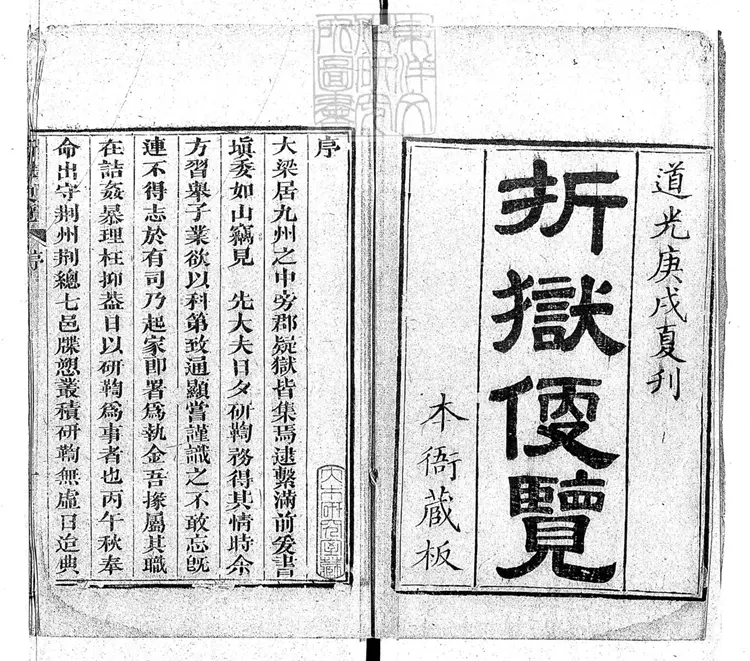 道光庚戌夏刊
折獄便覽
本衙藏板
序
大梁居九州之中旁郡疑獄皆集焉逮繫滿前爰書
塡委如山竊見　先大夫日夕研鞫務得其情時余
方習舉子業欲以科第致通顯嘗謹識之不敢忘旣
連不得志於有司乃起家即署爲執金吾掾屬其職
在詰姦暴理枉抑葢日以研鞫爲事者也丙午秋奉
命出守荆州荆總七邑牒愬叢積研鞫無虛日迨典
序
東洋文
化研究
所圖書